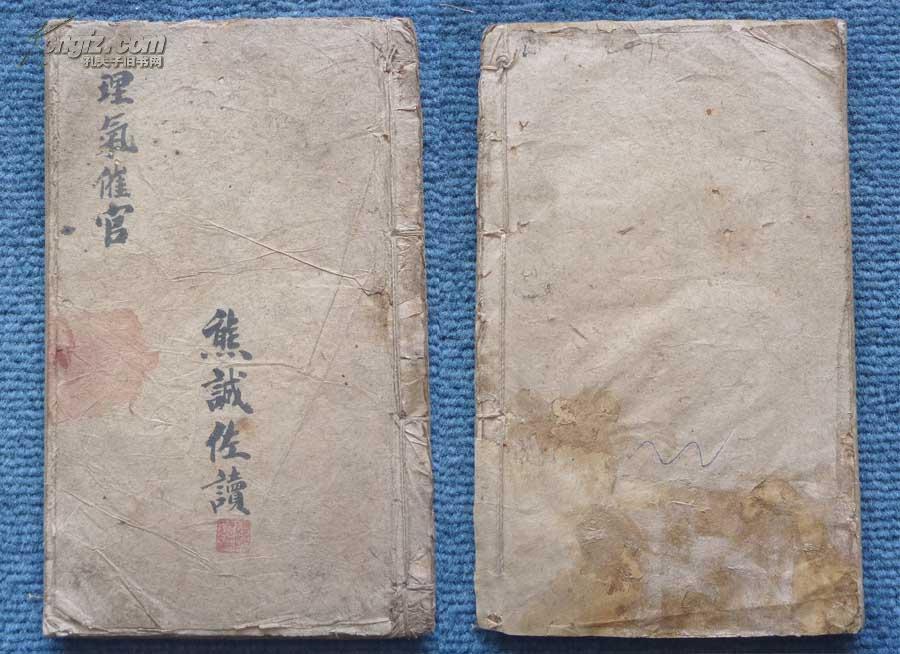 kongfz.com
孔夫子旧书网
理氣催官
熊誠佐讀